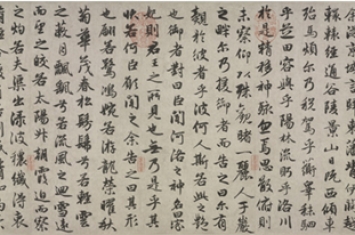 轘轅經通谷陵景山日既西傾車
殆馬煩爾乃稅駕乎蘅皋秣駟
乎芝田容與乎陽林流眄乎洛川
於是精移神駭忽焉思散俯則
未察仰以殊觀睹一麗人于巖
之畔乃援御者而告之曰爾有
覿於彼者乎彼何人斯若此之艷
也御者對曰臣聞河洛之神名曰宓
妃則君王之所見也無乃是乎其
狀若何臣願聞之余告之曰其形
也翩若驚鴻婉若游龍榮曜秋
菊華茂春松髣髴兮若輕雲
之蔽月飄飄兮若流風之迴雪遠
而望之皎若太陽升朝霞迫而察
之灼若芙蕖出淥波穠纖得衷